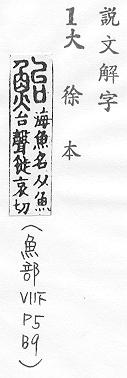 説文解字
1大徐本
鮐
海魚名从魚
台聲徒哀切
(魚部
VII下
P5
B9)